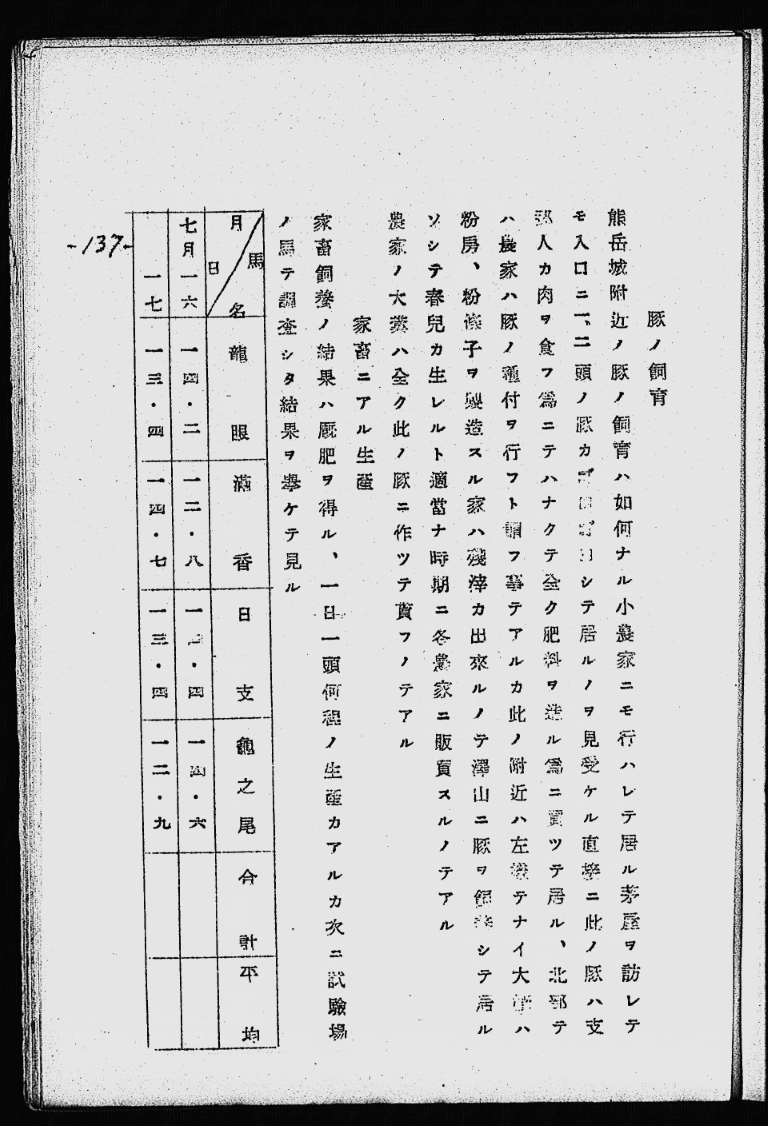 豚ノ飼育
熊岳城附近ノ豚ノ飼育ハ如何ナル小農家ニモ行ハレテ居ル茅屋ヲ訪レテ
モ入口ニ一、二頭ノ豚カゴロゴロシテ居ルノヲ見受ケル直接ニ此ノ豚ハ支
那人カ肉ヲ食フ為ニテハナクテ全ク肥料ヲ造ル為ニ買ツテ居ル、北部テ
ハ農家ハ豚ノ種付ヲ行フト謂フ事テアルカ此ノ附近ハ左様テナイ大体ハ
粉房、粉條子ヲ製造スル家ハ残滓カ出來ルノテ澤山ニ豚ヲ飼養シテ居ル
ソシテ春兒カ生レルト適當ナ時期ニ各農家ニ販賣スルノテアル
農家ノ大糞ハ全ク此ノ豚ニ作ツテ貰フノテアル
家畜ニアル生産
家畜飼養ノ結果ハ厩肥ヲ得ル、一日一頭何程ノ生産カアルカ次ニ試驗場
ノ馬テ調査シタ結果ヲ擧ケテ見ル
月日 馬名 龍眼 滿香 日支 龜之尾 合計 平均
七月一六 一四・二 一二・八 一・四 一四・六
一七 一三・四 一四・七 一三・四 一二・九
-137-